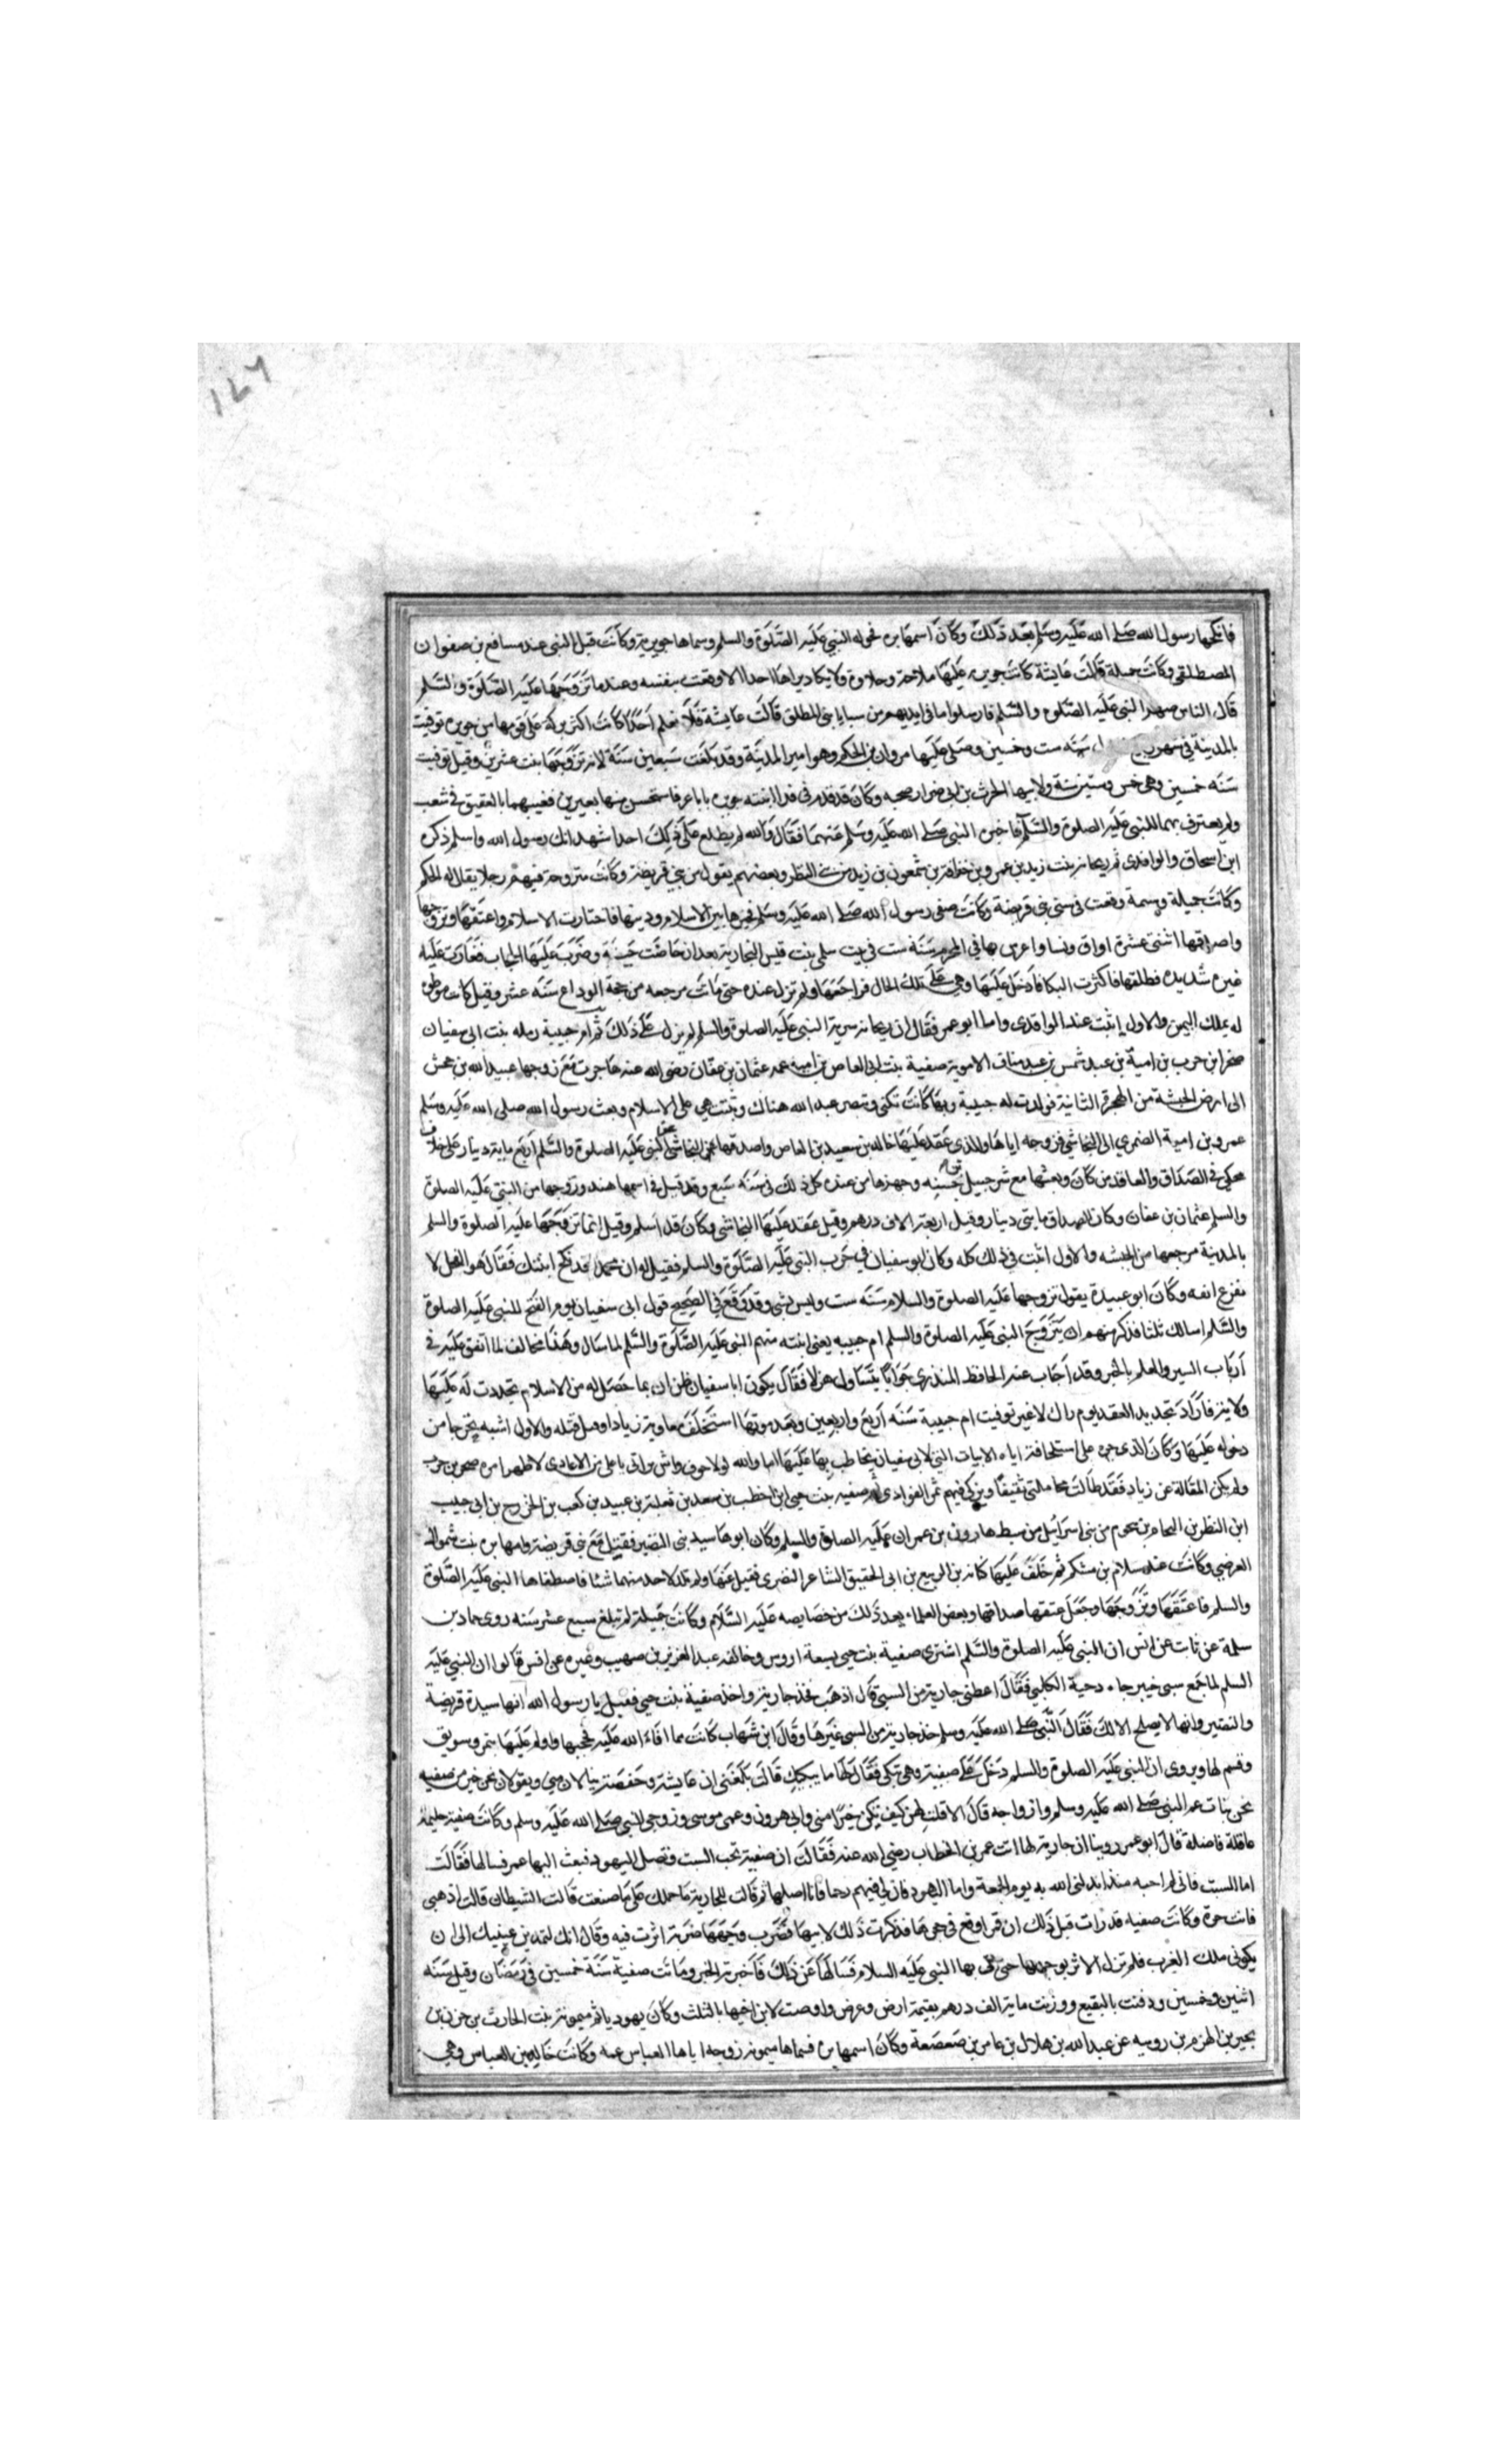 ١٤٦
فانكحها رسول الله صلے الله عليه وسلم بعد ذلك وكان اسمها بره فحوله النبي عليه الصلوة والسلم وسماها جويرية وكانت قبل النبي عند مسافع بن صفوان
المصطلقي وكانت جميلة قالت عايشة كانت جويريه عليها ملاحة وحلاوة ولا يكاد يراها احد الا وقعت بنفسه وعند ما تزوجها عليه الصلوة والسلم
قال الناس صهر النبي عليه الصلوة والسلم فارسلوا ما في ايديهم من سبايا بني المطلق قالت عايشة فلا نعلم احدًا كانت اكثر بركة على قومها من جويره توفيت
بالمدينة في شهر ربيع سنه ست وخمسين وصلى عليها مروان بن الحكم وهو امير المدينة وقد بلغت سبعين سنة لانه تزوجها بنت عشرين وقيل توفيت
سنه خمسين وهي خمس وستين سنة ولابيها الحرث بن ابي ضرار صحبه وكان قد قدم في فدا ابنته جويره باباعر فاستحسن منها بعيرين فغيبهما بالعقيق في شعب
ولم يعترف بهما للنبي عليه الصلوة والسلم فاخبره النبي صلے الله عليه وسلم عنهما فقال والله لم يطلع على ذلك احد اشهد انك رسول الله واسلم ذكره
ابن اسحاق والواقدي ثم ريحانه بنت زيد بن عمرو بن خنافة بن شمعون بن زيد من بني النظر وبعضهم يقول من بني قريضة وكانت متزوجة فيهم رجلا يقال له الحكم
وكانت جميلة وسمة وقعت في سبي بني قريضة وكانت صفي رسول الله صلے الله عليه وسلم فخيرها بين الاسلام ودينها فاختارت الاسلام واعتقها وتزوجها
واصدقها اثنتى عشرة اواق ونسا واعرس بها في المحرم سنة ست في بيت سلمى بنت قيس النجارية بعد ان حاضت حيضة وضرب عليها الحجاب فغارت عليه
غيره شديده فطلقها فاكثرت البكا فدخل عليها وهي على تلك الحال فراجعها ولم تزل عنده حتى ماتت مرجعه من حجة الوداع سنه عشر وقيل كانت موطوه
له بملك اليمن والاول اثبت عند الواقدي واما ابو عمر فقال ان ريحانه سرية النبي عليه الصلوة والسلم لم يزل على ذلك ثم ام حبيبة رمله بنت ابي سفيان
صخر ابن حرب بن امية بن عبد شمس بن عبد مناف الاموية صفية بنت ابي العاص بن اميه عمه عثمان بن عفان رضى الله عنه هاجرت مع زوجها عبيد الله بن جحش
الى ارض الحبشة من الهجرة الثانية فولدت له حبيبة وبها كانت تكنى وتنصر عبد الله هناك وثبتت هي على الاسلام وبعث رسول الله صلى الله عليه وسلم
عمرو بن امية الضمري الى النجاشي فزوجه اياها والذي عقد عليها خالد بن سعيد بن العاص واصدقها عن النبي عليه الصلوة والسلم اربع ماية دينار على خلاف
محكي في الصداق والعاقد من كان وبعثها مع شرحبيل بن حسنه وجهزها من عنده كل ذلك في سنه سبع وقد قيل في اسمها هند وزوجها من النبي عليه الصلوة
والسلم عثمان بن عفان وكان الصداق مايتى دينار وقيل اربعة الاف درهم وقيل عقد عليها النجاشي وكان قد اسلم وقيل انما تزوجها عليه الصلوة والسلم
بالمدينة مرجعها من الحبشه والاول اثبت في ذلك كله وكان ابو سفيان في حرب النبي عليه الصلوة والسلم فقيل له ان محمدًا قد نكح ابنتك فقال هو الفحل لا
نفزع انفه وكان ابو عبيدة يقول تزوجها عليه الصلوة والسلام سنه ست وليس بشي وقد وقع في الصحيح قول ابى سفيان يوم الفتح للنبي عليه الصلوة
والسلم اسالك ثلثا فذكر منهم ان يتزوج النبي عليه الصلوة والسلم ام حبيبه يعني ابنته منهم النبي عليه الصلوة والسلم لما سال وهذا مخالف لما اتفق عليه في
ارباب السير والعلم بالخبر وقد اجاب عنه الحافظ المنذري جوابًا يتساول هزلا فقال يكون ابا سفيان ظن ان بما حصل له من الاسلام تجددت له عليها
ولايه فاراد تجديد العقد يوم ذاك لا غير توفيت ام حبيبة سنه اربع واربعين وبعد موتها استخلف معاوية زيادا وقيل قبله والاول اشبه بتحرجها من
دخوله عليها وكان الذي جره على استلحاقة اياه الابيات التي لابى سفيان يخاطب بها عليها اما والله لولا خوف واش يراني يا على من الاعادي لاظهر امره صخر بن حرب
ولم يكن المقالة عن زياد فقد طالت مجاملتى ثقيفًا وتركي فيهم ثمر الفوادى ثم صفيه بنت حيى ابن اخطب بن سعد بن ثعلبة بن عبيد بن كعب بن الخزرج بن ابي حبيب
ابن النظر بن النحام بن نحوم من بني اسرايل من سبط هارون بن عمران عليه الصلوة والسلم وكان ابوها سيد بنى النضير فقتل مع بني قريضة وامها بره بنت شموال
القرضي وكانت عند سلام بن مشكم ثم خلف عليها كنانه بن الربيع بن ابى الحقيق الشاعر النضري فقيل عنها ولم تلد لاحد منهما شئا فاصطفاها النبي عليه الصلوة
والسلم فاعتقها وتزوجها وجعل عتقها صداقها وبعض العلماء يعد ذلك من خصايصه عليه السلام وكانت جميلة لم تبلغ سبع عشر سنه روى حماد بن
سلمة عن ثابت عن انس ان النبي عليه الصلوة والسلم اشترى صفية بنت حيي بسعة اروس وخالفه عبد العزيز بن صهيب وغيره عن انس قالوا ان النبي عليه
السلم لما جمع سبي خيبر جاء دحية الكلبي فقال اعطني جارية من السبي قال اذهب فخذ جارية واخذ صفية بنت حيى فقيل يا رسول الله انها سيدة قريضة
والنضير وانها لا يصلح الا لك فقال النبي صلے الله عليه وسلم خذ جارية من السبى غيرها وقال ابن شهاب كانت مما افاء الله عليه فحجبها واولم عليها بتمر وسويق
وقسم لها ويروى ان النبي عليه الصلوة والسلم دخل على صفية وهي تبكي فقال لها ما يبكيك قالت بلغني ان عايشة وحفصة ينالان مني ويقولان نحن خير من صفيه
نحن بنات عم النبي صلے الله عليه وسلم وازواجه قال الا قلت لهن كيف تكن خيرًا مني وابي هرون وعمي موسى وزوجى النبي صلے الله عليه وسلم وكانت صفية حليمة
عاقلة فاضلة قال ابو عمر روينا ان جارية لها اتت عمر بن الخطاب رضي الله عنه فقالت ان صفية تحب السبت وتصل اليهود فبعث اليها عمر فسالها فقالت
اما السبت فاني لم احبه منذ ابدلنى الله به يوم الجمعة واما اليهود فان لي فيهم رحما فانا اصلها ثم قالت للجارية ما حملك على ما صنعت قالت الشيطان قالت اذهبي
فانت حرة وكانت صفيه قد رات قبل ذلك ان قمرا وقع في حجرها فذكرت ذلك لابيها فضرب وجهها ضربة اثرت فيه وقال انك لتمدين عينيك الى ان
يكوني ملك العرب فلم تزل الاثر بوجهها حتى اتى بها النبي عليه السلام فسالها عن ذلك فاخبرته الخبر وماتت صفية سنة خمسين في رمضان وقيل سنه
اثنين وخمسين ودفنت بالبقيع وورثت ماية الف درهم بقيمة ارض وعرض واوصت لابن اخيها بالثلث وكان يهوديا ثم ميمونة بنت الحارث بن حزن بن
بجير بن الهزم بن رويبه عن عبد الله بن هلال بن عامر بن صعصعة وكان اسمها بره فسماها ميمونة زوجه اياها العباس عمه وكانت خالة بن العباس وهي